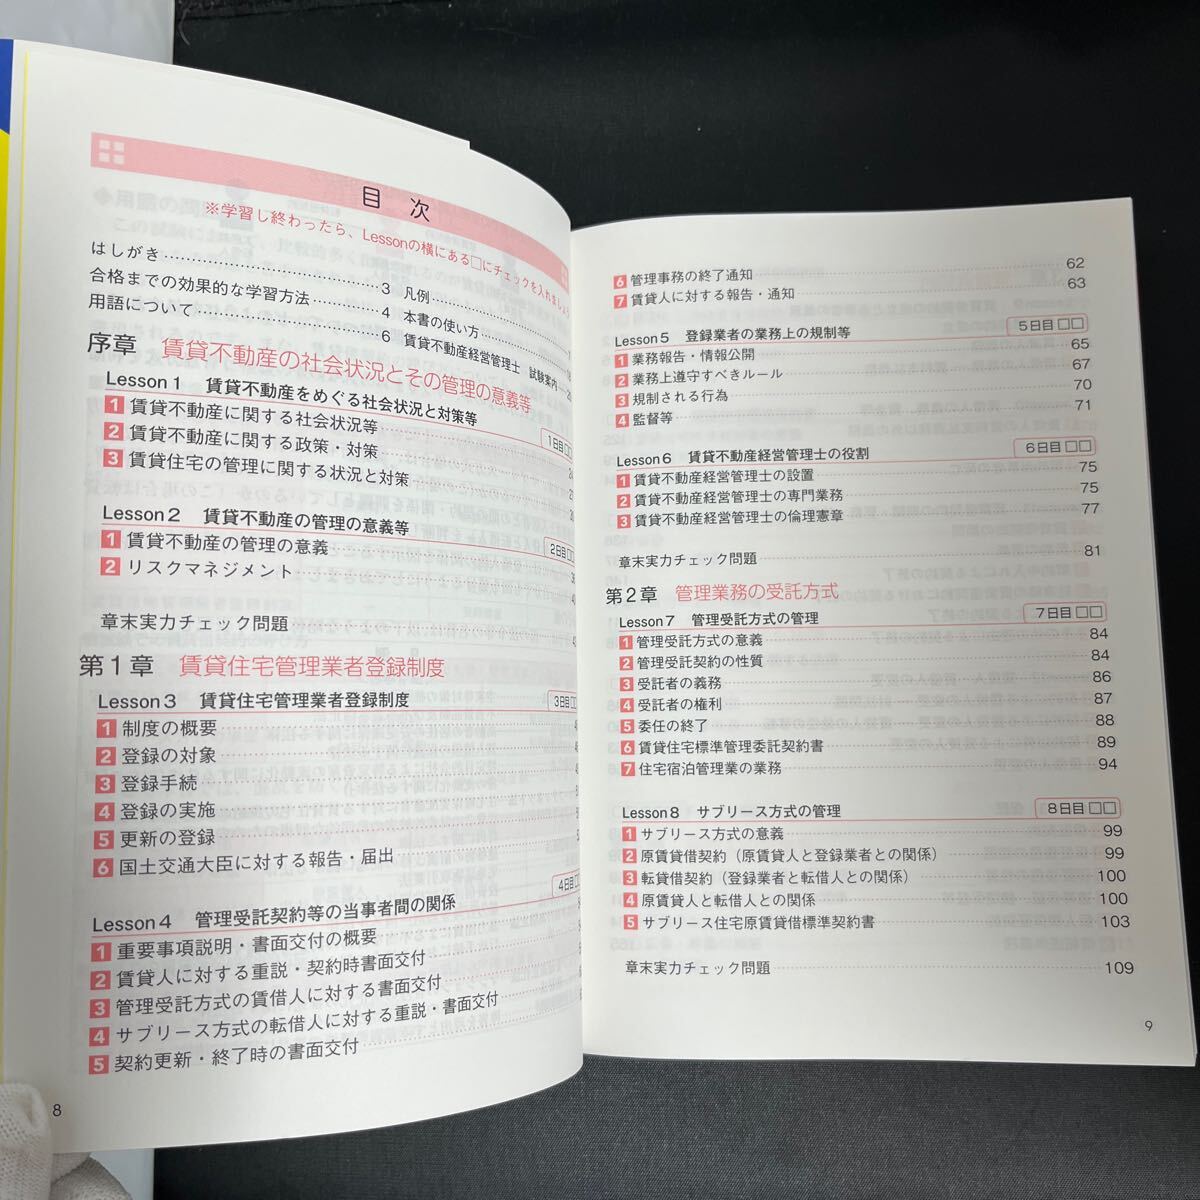 目 次
※学習し終わったら、Lessonの横にある□にチェックを入れましょう
はしがき 3 凡例
合格までの効果的な学習方法 4 本書の使い方
用語について 6 賃貸不動産経営管理士 試験案内
序章 賃貸不動産の社会状況とその管理の意義等
Lesson1 賃貸不動産をめぐる社会状況と対策等 1日目□□
1 賃貸不動産に関する社会状況等
2 賃貸不動産に関する政策・対策
3 賃貸住宅の管理に関する状況と対策
Lesson2 賃貸不動産の管理の意義等 2日目□□
1 賃貸不動産の管理の意義
2 リスクマネジメント
章末実力チェック問題
第1章 賃貸住宅管理業者登録制度
Lesson3 賃貸住宅管理業者登録制度 3日目□
1 制度の概要
2 登録の対象
3 登録手続
4 登録の実施
5 更新の登録
6 国土交通大臣に対する報告・届出
Lesson4 管理受託契約等の当事者間の関係 4日目□
1 重要事項説明・書面交付の概要
2 賃貸人に対する重説・契約時書面交付
3 管理受託方式の賃借人に対する書面交付
4 サブリース方式の転借人に対する重説・書面交付
5 契約更新・終了時の書面交付
8
6 管理事務の終了通知 62
7 賃貸人に対する報告・通知 63
Lesson5 登録業者の業務上の規制等 5日目□□
1 業務報告・情報公開 65
2 業務上遵守すべきルール 67
3 規制される行為 70
4 監督等 71
Lesson6 賃貸不動産経営管理士の役割 6日目□□
1 賃貸不動産経営管理士の設置 75
2 賃貸不動産経営管理士の専門業務 75
3 賃貸不動産経営管理士の倫理憲章 77
章末実力チェック問題 81
第2章 管理業務の受託方式
Lesson7 管理受託方式の管理 7日目□□
1 管理受託方式の意義 84
2 管理受託契約の性質 84
3 受託者の義務 86
4 受託者の権利 87
5 委任の終了 88
6 賃貸住宅標準管理委託契約書 89
7 住宅宿泊管理業の業務 94
Lesson8 サブリース方式の管理 8日目□□
1 サブリース方式の意義 99
2 原賃貸借契約（原賃貸人と登録業者との関係） 99
3 転貸借契約（登録業者と転借人との関係） 100
4 原賃貸人と転借人との関係 100
5 サブリース住宅原賃貸借標準契約書 103
章末実力チェック問題 109
9